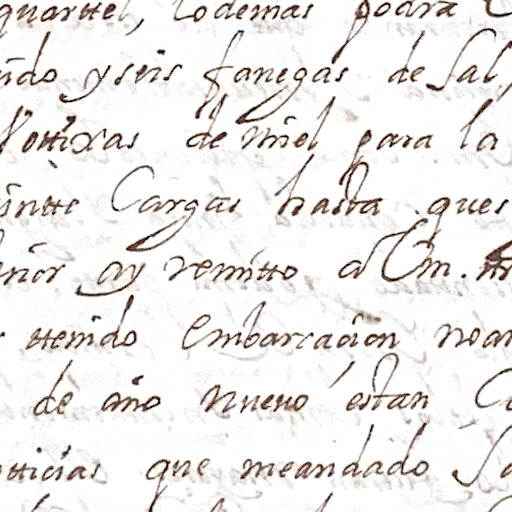 quarttel, Lodemas podra
ido y seis fanegas de Sal,
Vottixas de miel para la
intte Cargas hasta ques
ñor ay remitto a Vm.
ttenido embarcacion noa
de año nuevo estan C
otticias que meandado S